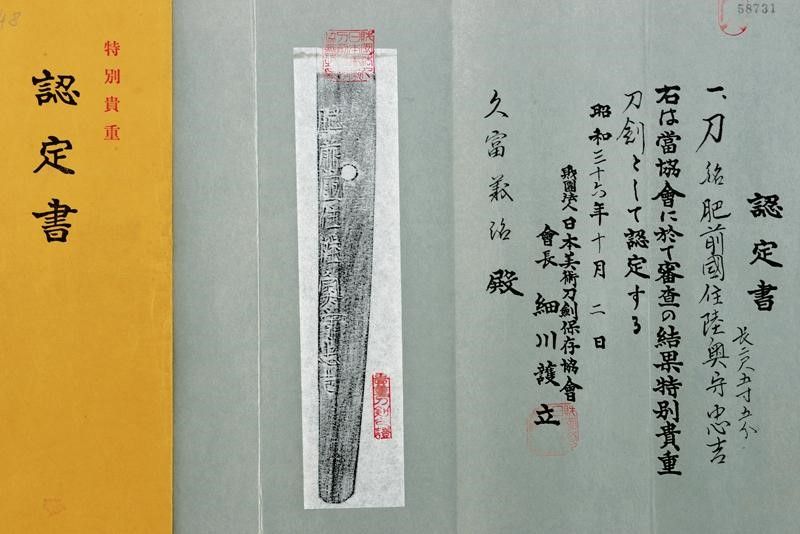 特別貴重
認定書
58731
認定書
一、刀 銘 肥前國住陸奥守忠吉
長二尺五寸五分
右は當協會に於て審査の結果特別貴重
刀劍として認定する
昭和三十六年十月二日
財團法人日本美術刀劍保存協會
會長 細川護立
久富義
殿
肥前國住陸奥守忠吉